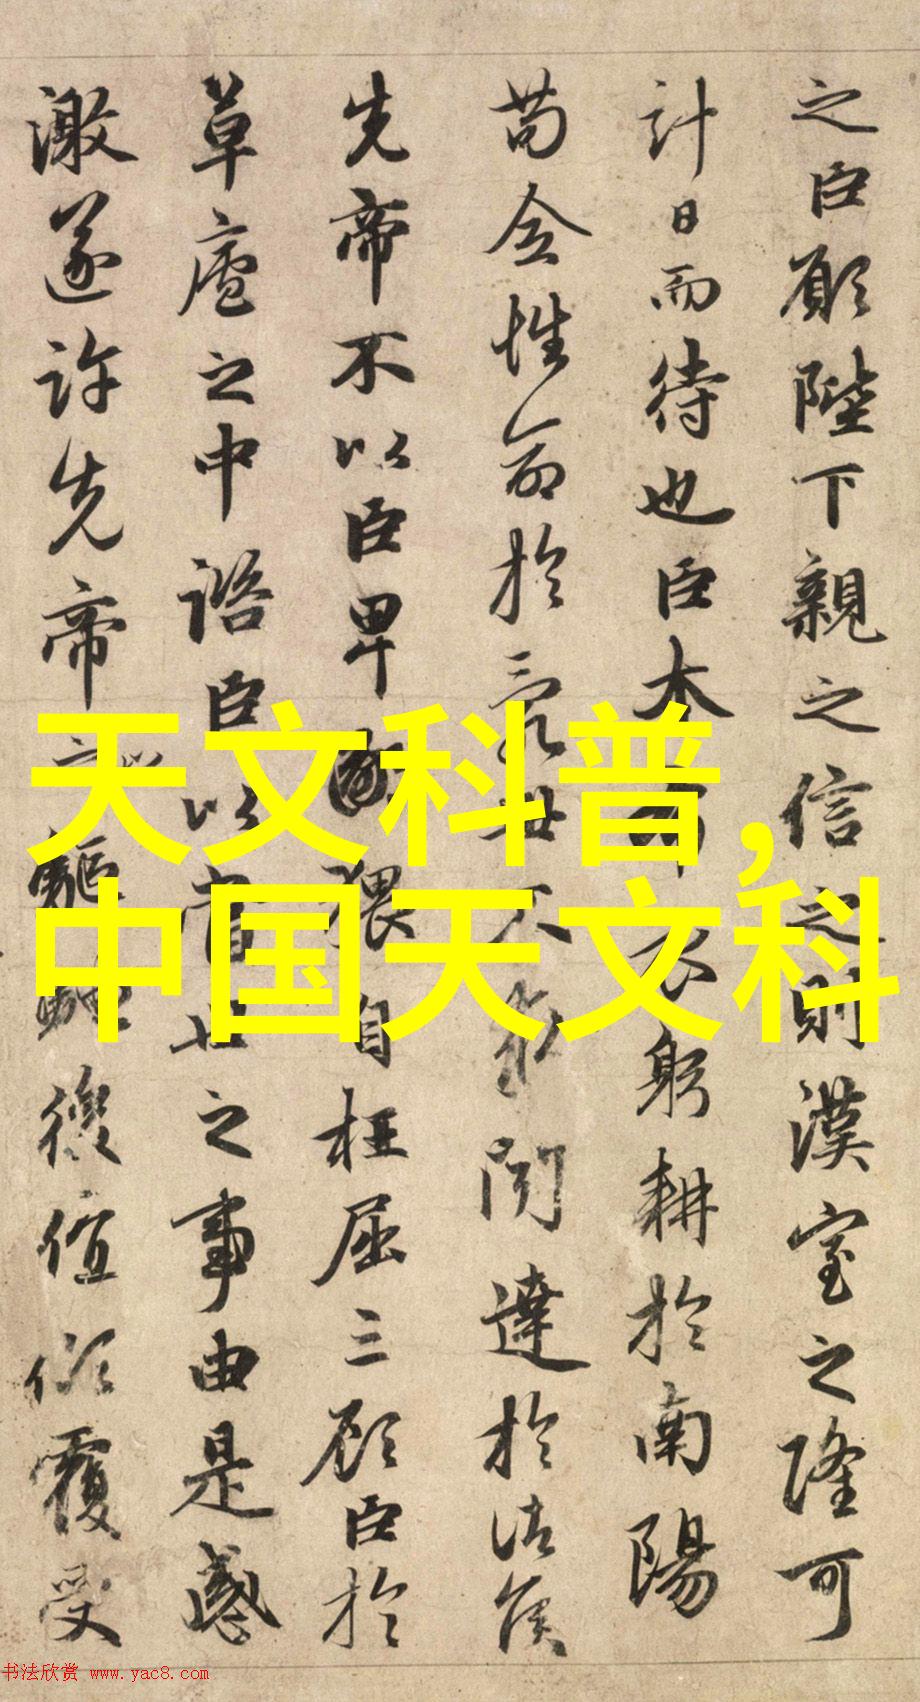 之臣願陛下親之信之則漢室之隆可
計日而待也臣本布衣躬耕於南陽
苟全性命於亂世不求聞達於諸侯
先帝不以臣卑鄙猥自枉屈三顧臣於
草廬之中諮臣以當世之事由是感
激遂許先帝以驅馳後值傾覆受
天文科普,
中国天文科
书法欣赏 www.yac8.com